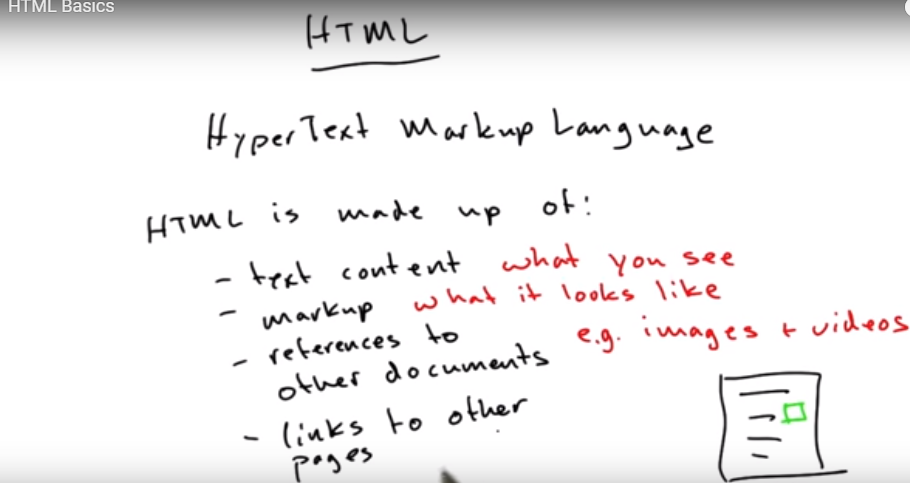 HTML Basics
HTML
HyperText Markup Language
HTML is made up of:
- text content what you see
- markup what it looks like
- references to e.g. images + videos
other documents
- links to other
pages